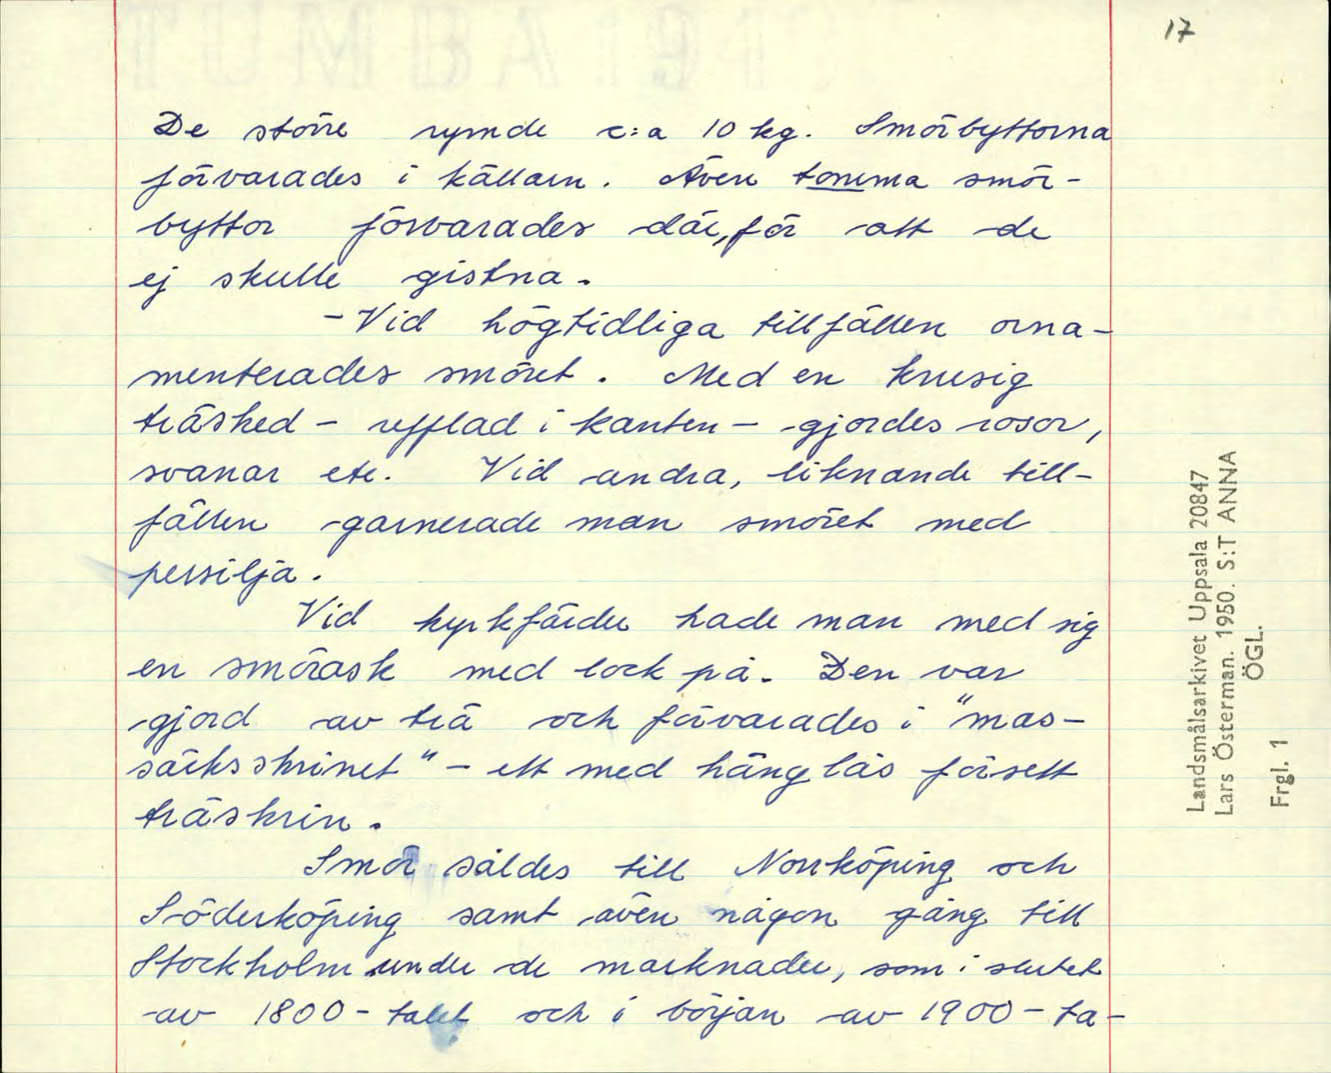 17
De större rymde c:a 10 kg. Smörbyttorna
förvarades i källarn. Även tomma smör-
byttor förvarades där, för att de
ej skulle gistna.
- Vid högtidliga tillfällen orna-
menterades smöret. Med en krusig
träsked - refflad i kanten - gjordes rosor,
svanar etc. Vid andra, liknande till-
fällen garnerade man smöret med
persilja.
Vid kyrkfärder hade man med sig
en smörask med lock på. Den var
gjord av trä och förvarades i "mas-
säcksskrinet" - ett med hänglås försett
träskrin.
Smör såldes till Norrköping och
Söderköping samt även någon gång till
Stockholm under de marknader, som i slutet
av 1800-talet och i början av 1900-ta-
Landsmålsarkivet Uppsala 20847
Lars Österman. 1950. S:T ANNA
ÖGL.
Frgl. 1